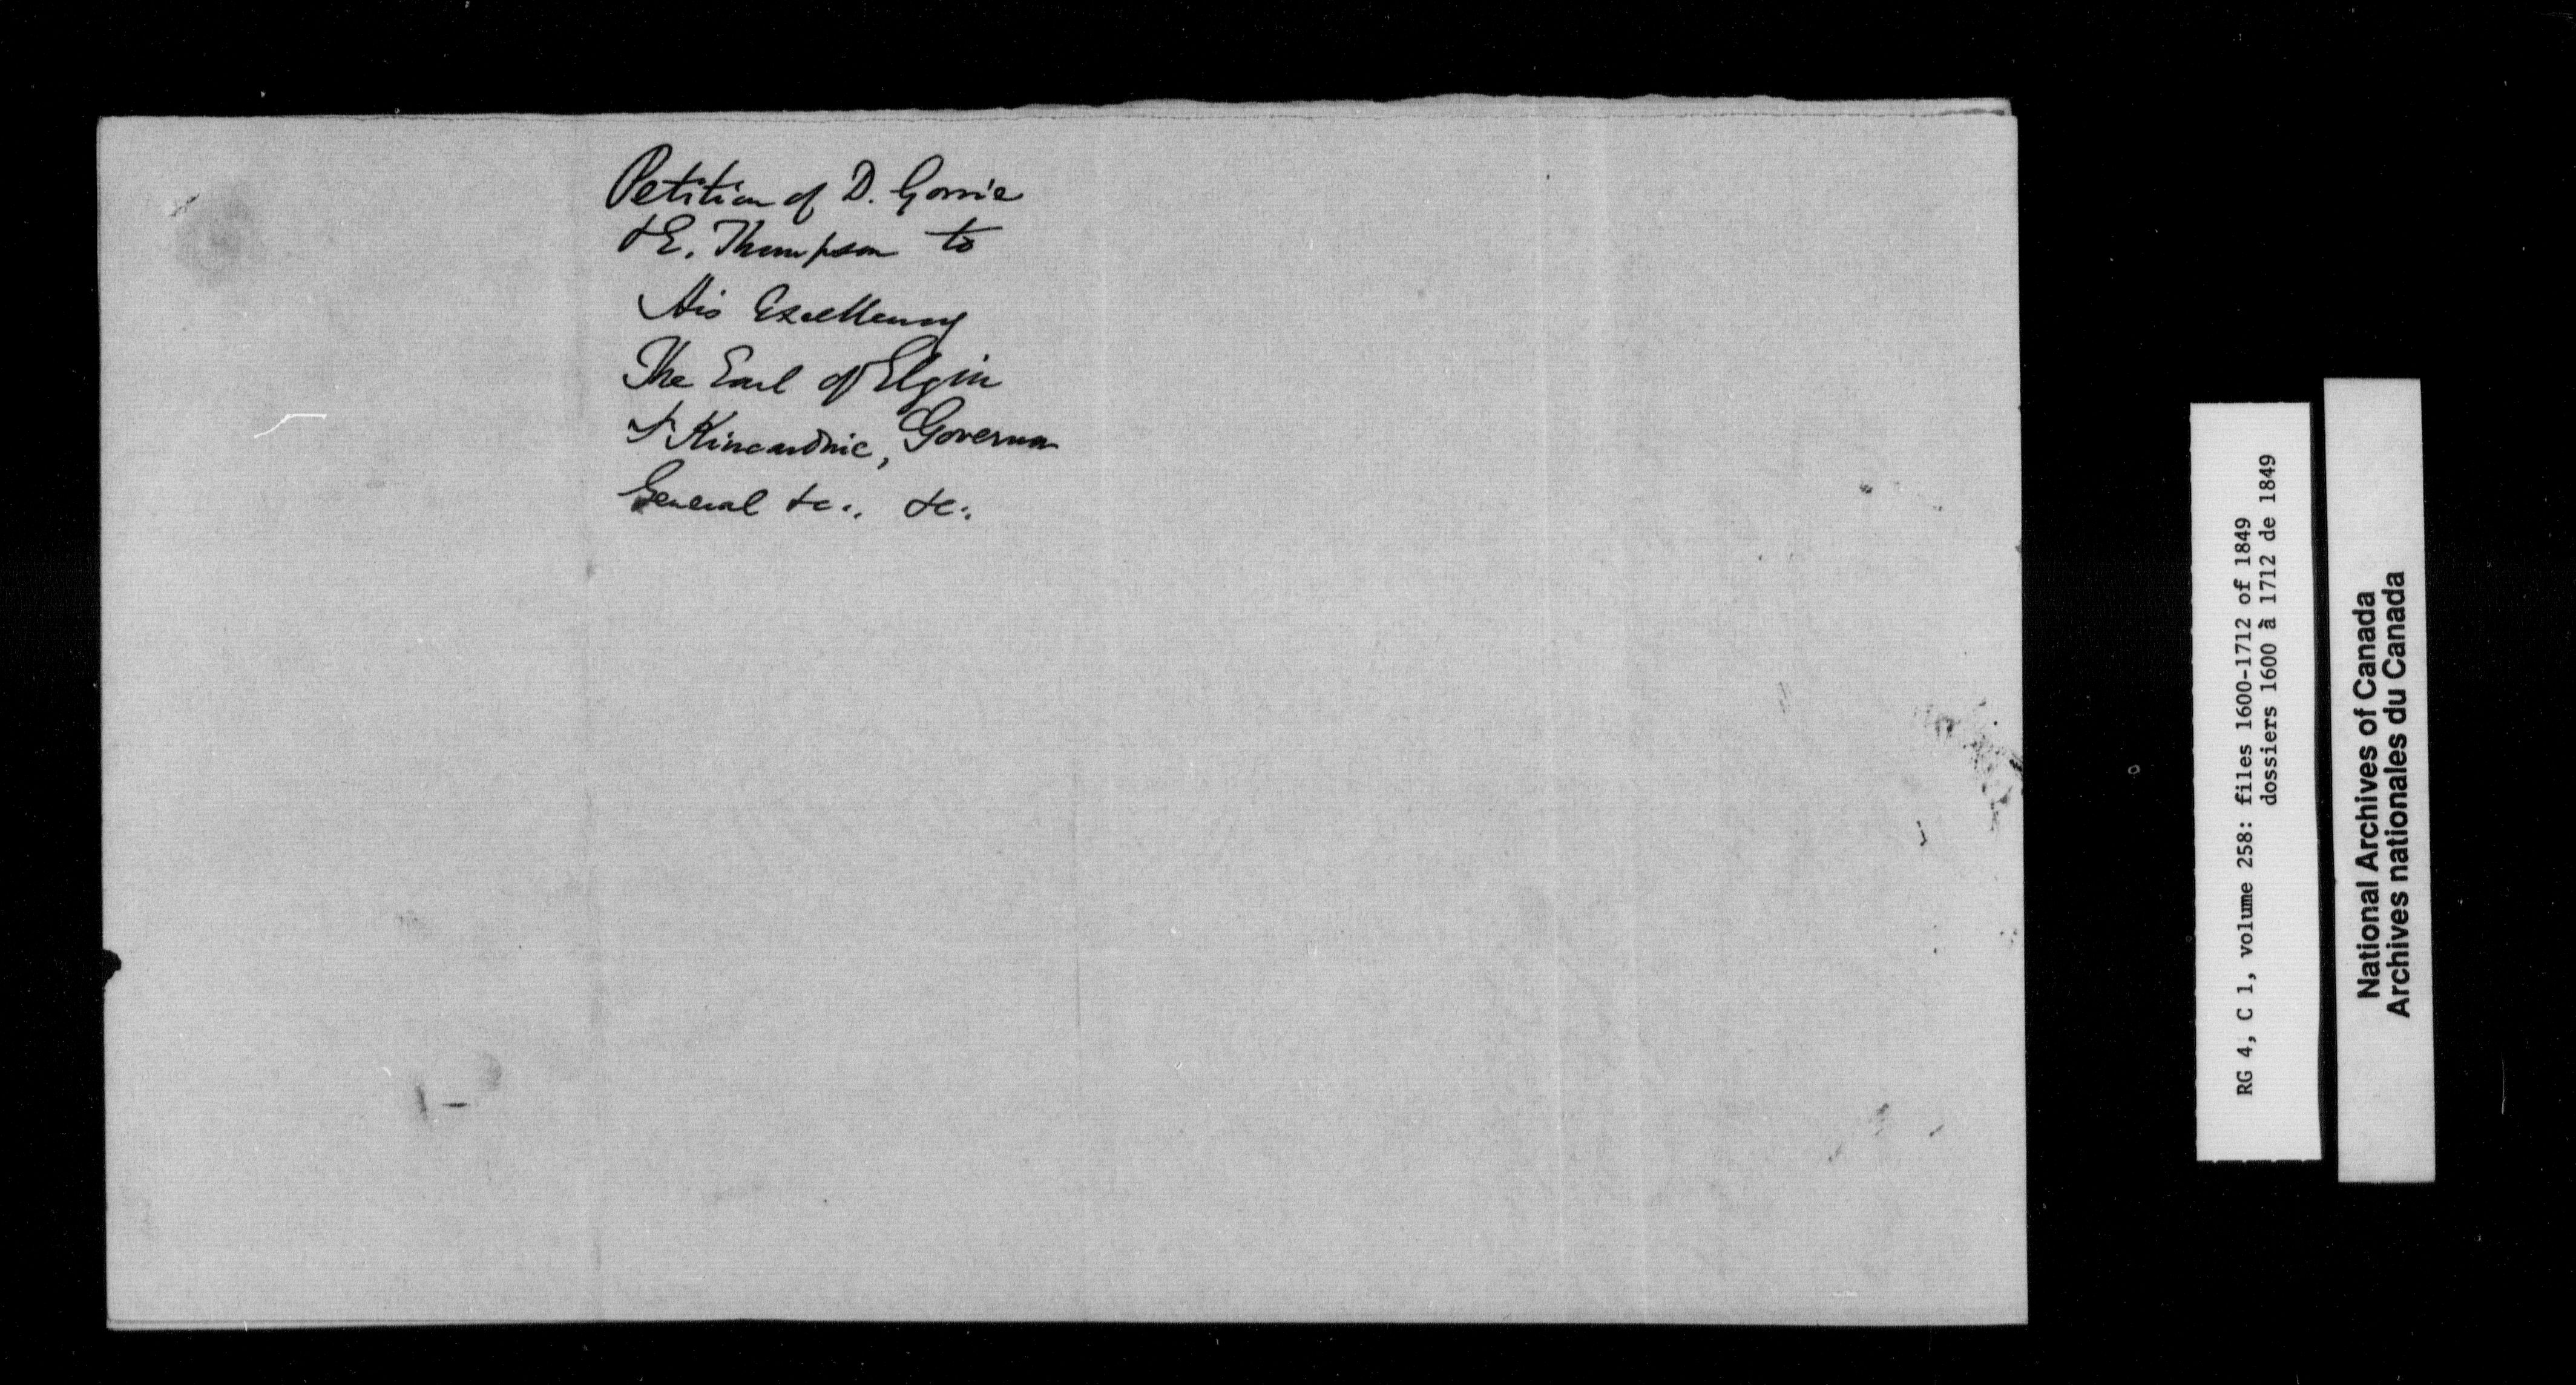 Petition of D. Gorrie
& E. Thompson to
His Excellency
The Earl of Elgin
& Kincardine, Governor
General &c.. &c.
RG 4, C 1, volume 258: files 1600-1712 of 1849
dossiers 1600 à 1712 de 1849
National Archives of Canada
Archives nationales du Canada